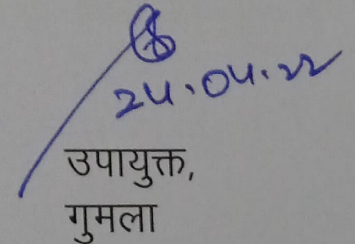 24.04.22
उपायुक्त,
गुमला